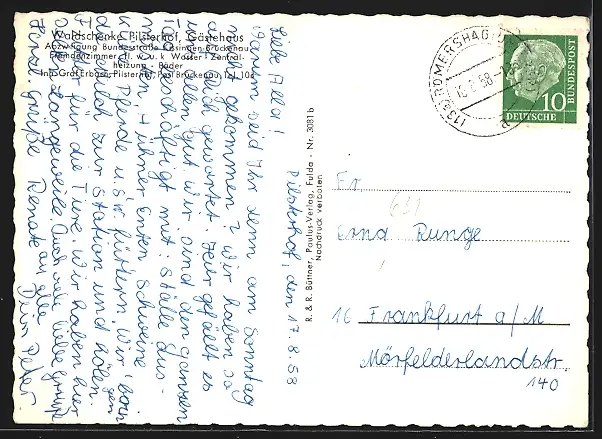 Waldschenke Pilsterhof, Gästehaus
Abzweigung Bundesstraße Kissingen-Brückenau
Fremdenzimmer fl. w. u. k. Wasser - Zentral-
heizung - Bäder
Inh. Graf, Erbaron Pilsterhof, Post Brückenau, Tel. 106
Pilsterhof, den 17.8.58
Liebe Alla!
Warum seid Ihr denn am Sonntag
nicht gekommen? Wir haben so
auf Euch gewartet. Hier gefällt es
uns allen gut. Wir sind den ganzen
Tag beschäftigt mit: Ställe aus-
misten, Hühner Enten Schweine
und Pferde u.s.w. füttern. Wir
zur Station und holen
für die Tiere. Wir haben hier
keine Langeweile. Auch viele liebe Grüße
Renate an alle
Dein Peter
R. & R. Büttner, Paulus-Verlag, Fulda - Nr. 3081 b
Nachdruck verboten
(13a) RÖMERSHAG
18.8.58
10
DEUTSCHE
BUNDESPOST
Fr.
631
Erna Runge
16 Frankfurt a/M
Mörfelderlandstr.
140